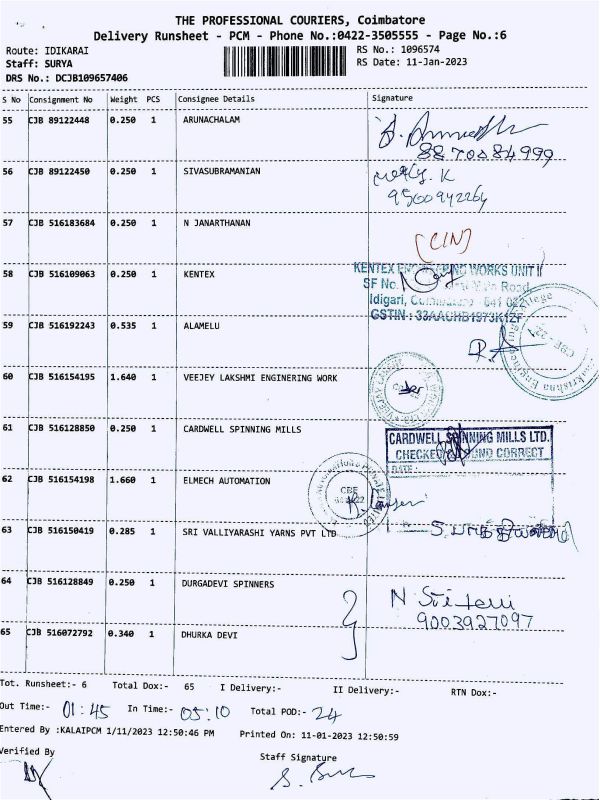 THE PROFESSIONAL COURIERS, Coimbatore
Delivery Runsheet - PCM - Phone No.:0422-3505555 - Page No.:6
Route: IDIKARAI
Staff: SURYA
DRS No.: DCJB109657406
RS No.: 1096574
RS Date: 11-Jan-2023
S No Consignment No Weight PCS Consignee Details Signature
55 CJB 89122448 0.250 1 ARUNACHALAM
8870884999
56 CJB 89122450 0.250 1 SIVASUBRAMANIAN
9500942264
57 CJB 516183684 0.250 1 N JANARTHANAN
(CIN)
58 CJB 516109063 0.250 1 KENTEX
KENTEX ENGINEERING WORKS UNIT II
SF No. Road
Idigari, Coimbatore - 641 022
GSTIN : 33AACHB4973K1ZF
59 CJB 516192243 0.535 1 ALAMELU
60 CJB 516154195 1.640 1 VEEJEY LAKSHMI ENGINERING WORK
61 CJB 516128850 0.250 1 CARDWELL SPINNING MILLS
CARDWELL SPINNING MILLS LTD.
CHECKED FOUND CORRECT
DATE:
62 CJB 516154198 1.660 1 ELMECH AUTOMATION
CBE
63 CJB 516150419 0.285 1 SRI VALLIYARASHI YARNS PVT LTD
64 CJB 516128849 0.250 1 DURGADEVI SPINNERS
N
9003927097
65 CJB 516072792 0.340 1 DHURKA DEVI
Tot. Runsheet:- 6 Total Dox:- 65 I Delivery:- II Delivery:- RTN Dox:-
Out Time:- 01:45 In Time:- 05:10 Total POD:- 24
Entered By :KALAIPCM 1/11/2023 12:50:46 PM Printed On: 11-01-2023 12:50:59
Verified By
Staff Signature